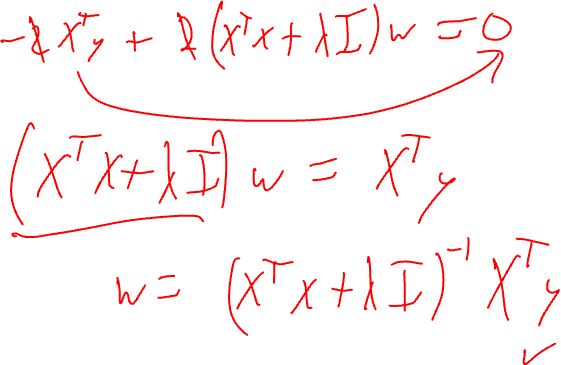 -2X^Ty + 2(X^Tx + λI)w = 0
(X^Tx + λI)w = X^Ty
w = (X^Tx + λI)^-1 X^Ty
✓